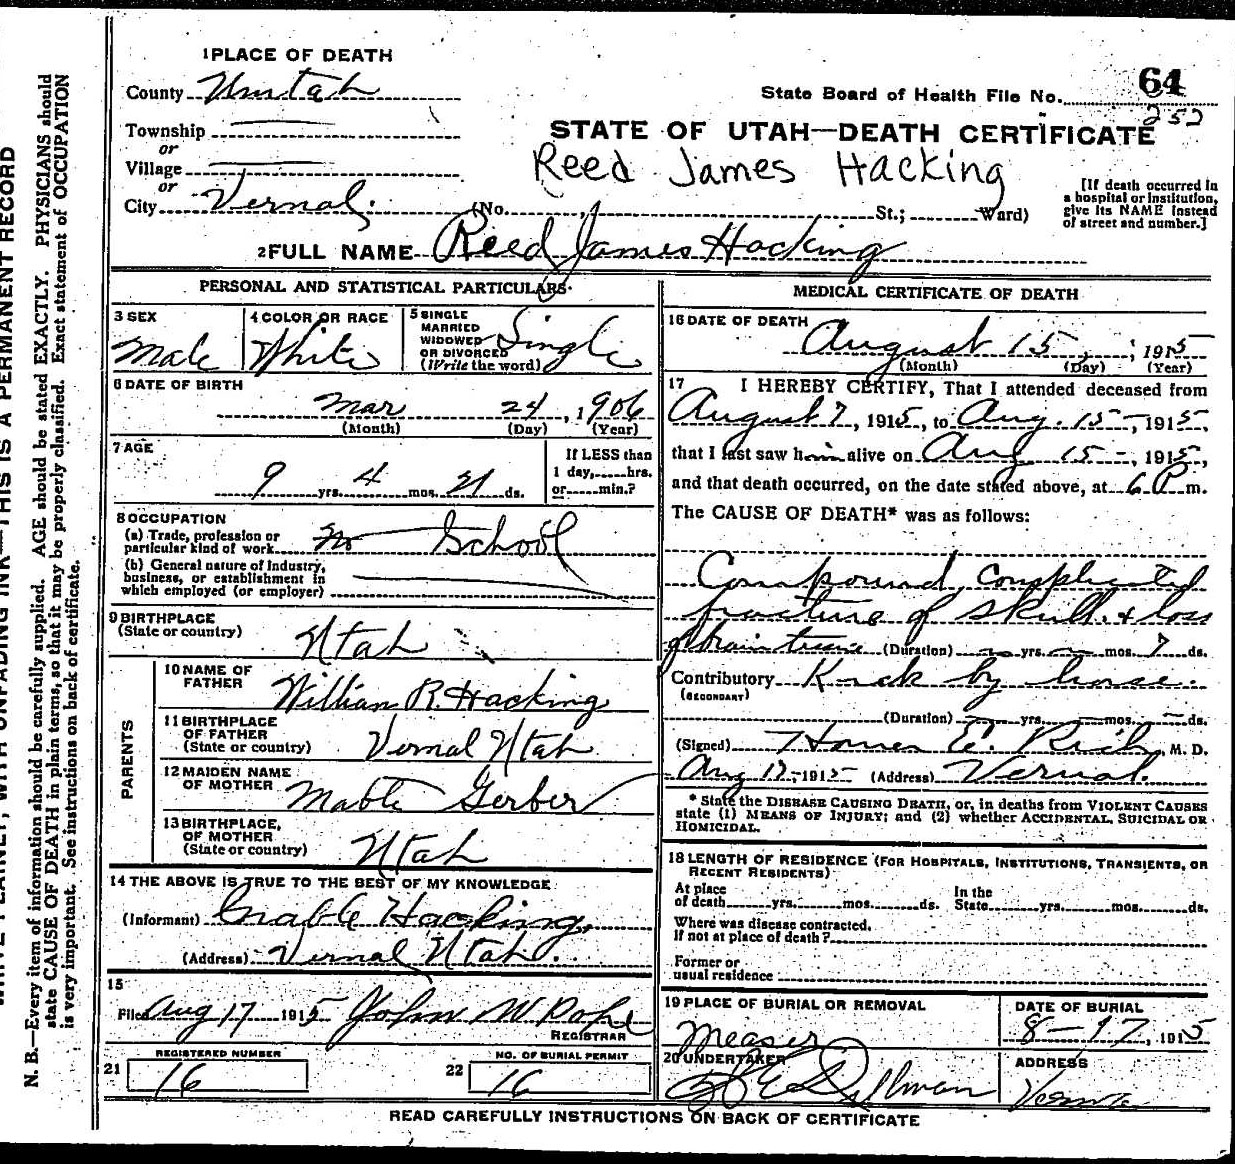 1 PLACE OF DEATH
County Uintah
Township
or
Village
or
City Vernal. (No. St.; Ward)
State Board of Health File No. 64
252
STATE OF UTAH—DEATH CERTIFICATE
Reed James Hacking
[If death occurred in
a hospital or institution,
give its NAME instead
of street and number.]
2 FULL NAME Reed James Hacking
PERSONAL AND STATISTICAL PARTICULARS
3 SEX
Male
4 COLOR OR RACE
White
5 SINGLE
MARRIED
WIDOWED
OR DIVORCED
(Write the word)
Single
6 DATE OF BIRTH
Mar 24, 1906
(Month) (Day) (Year)
7 AGE
9 yrs. 4 mos. 21 ds.
If LESS than
1 day, hrs.
or min.?
8 OCCUPATION
(a) Trade, profession or
particular kind of work School
(b) General nature of Industry,
business, or establishment in
which employed (or employer)
9 BIRTHPLACE
(State or country)
Utah
PARENTS
10 NAME OF
FATHER
William R. Hacking
11 BIRTHPLACE
OF FATHER
(State or country)
Vernal Utah
12 MAIDEN NAME
OF MOTHER
Mable Gerber
13 BIRTHPLACE,
OF MOTHER
(State or country)
Utah
14 THE ABOVE IS TRUE TO THE BEST OF MY KNOWLEDGE
(Informant) Mable Hacking,
(Address) Vernal Utah.
15
Filed Aug 17 1915 John W Pope
REGISTRAR
REGISTERED NUMBER
21 16
NO. OF BURIAL PERMIT
22 16
MEDICAL CERTIFICATE OF DEATH
16 DATE OF DEATH
August 15, 1915
(Month) (Day) (Year)
17 I HEREBY CERTIFY, That I attended deceased from
August 7, 1915, to Aug. 15-, 1915,
that I last saw him alive on Aug 15-, 1915,
and that death occurred, on the date stated above, at 6 P m.
The CAUSE OF DEATH* was as follows:
Compound complicated
fracture of skull. & loss
of brain tissue (Duration) yrs. mos. 7 ds.
Contributory Kick by horse.
(SECONDARY)
(Duration) yrs. mos. ds.
(Signed) Homer E. Rich, M. D.
Aug 17-1915 (Address) Vernal.
* State the DISEASE CAUSING DEATH, or, in deaths from VIOLENT CAUSES
state (1) MEANS OF INJURY; and (2) whether ACCIDENTAL, SUICIDAL OR
HOMICIDAL.
18 LENGTH OF RESIDENCE (FOR HOSPITALS, INSTITUTIONS, TRANSIENTS, OR
RECENT RESIDENTS)
At place
of death yrs. mos. ds.
In the
State yrs. mos. ds.
Where was disease contracted,
If not at place of death?
Former or
usual residence
19 PLACE OF BURIAL OR REMOVAL
DATE OF BURIAL
8-17, 1915
20 UNDERTAKER
ADDRESS
Vernal
READ CAREFULLY INSTRUCTIONS ON BACK OF CERTIFICATE
THIS IS A PERMANENT RECORD
N. B.—Every item of information should be carefully supplied. AGE should be stated EXACTLY. PHYSICIANS should
state CAUSE OF DEATH in plain terms, so that it may be properly classified. Exact statement of OCCUPATION
is very important. See instructions on back of certificate.